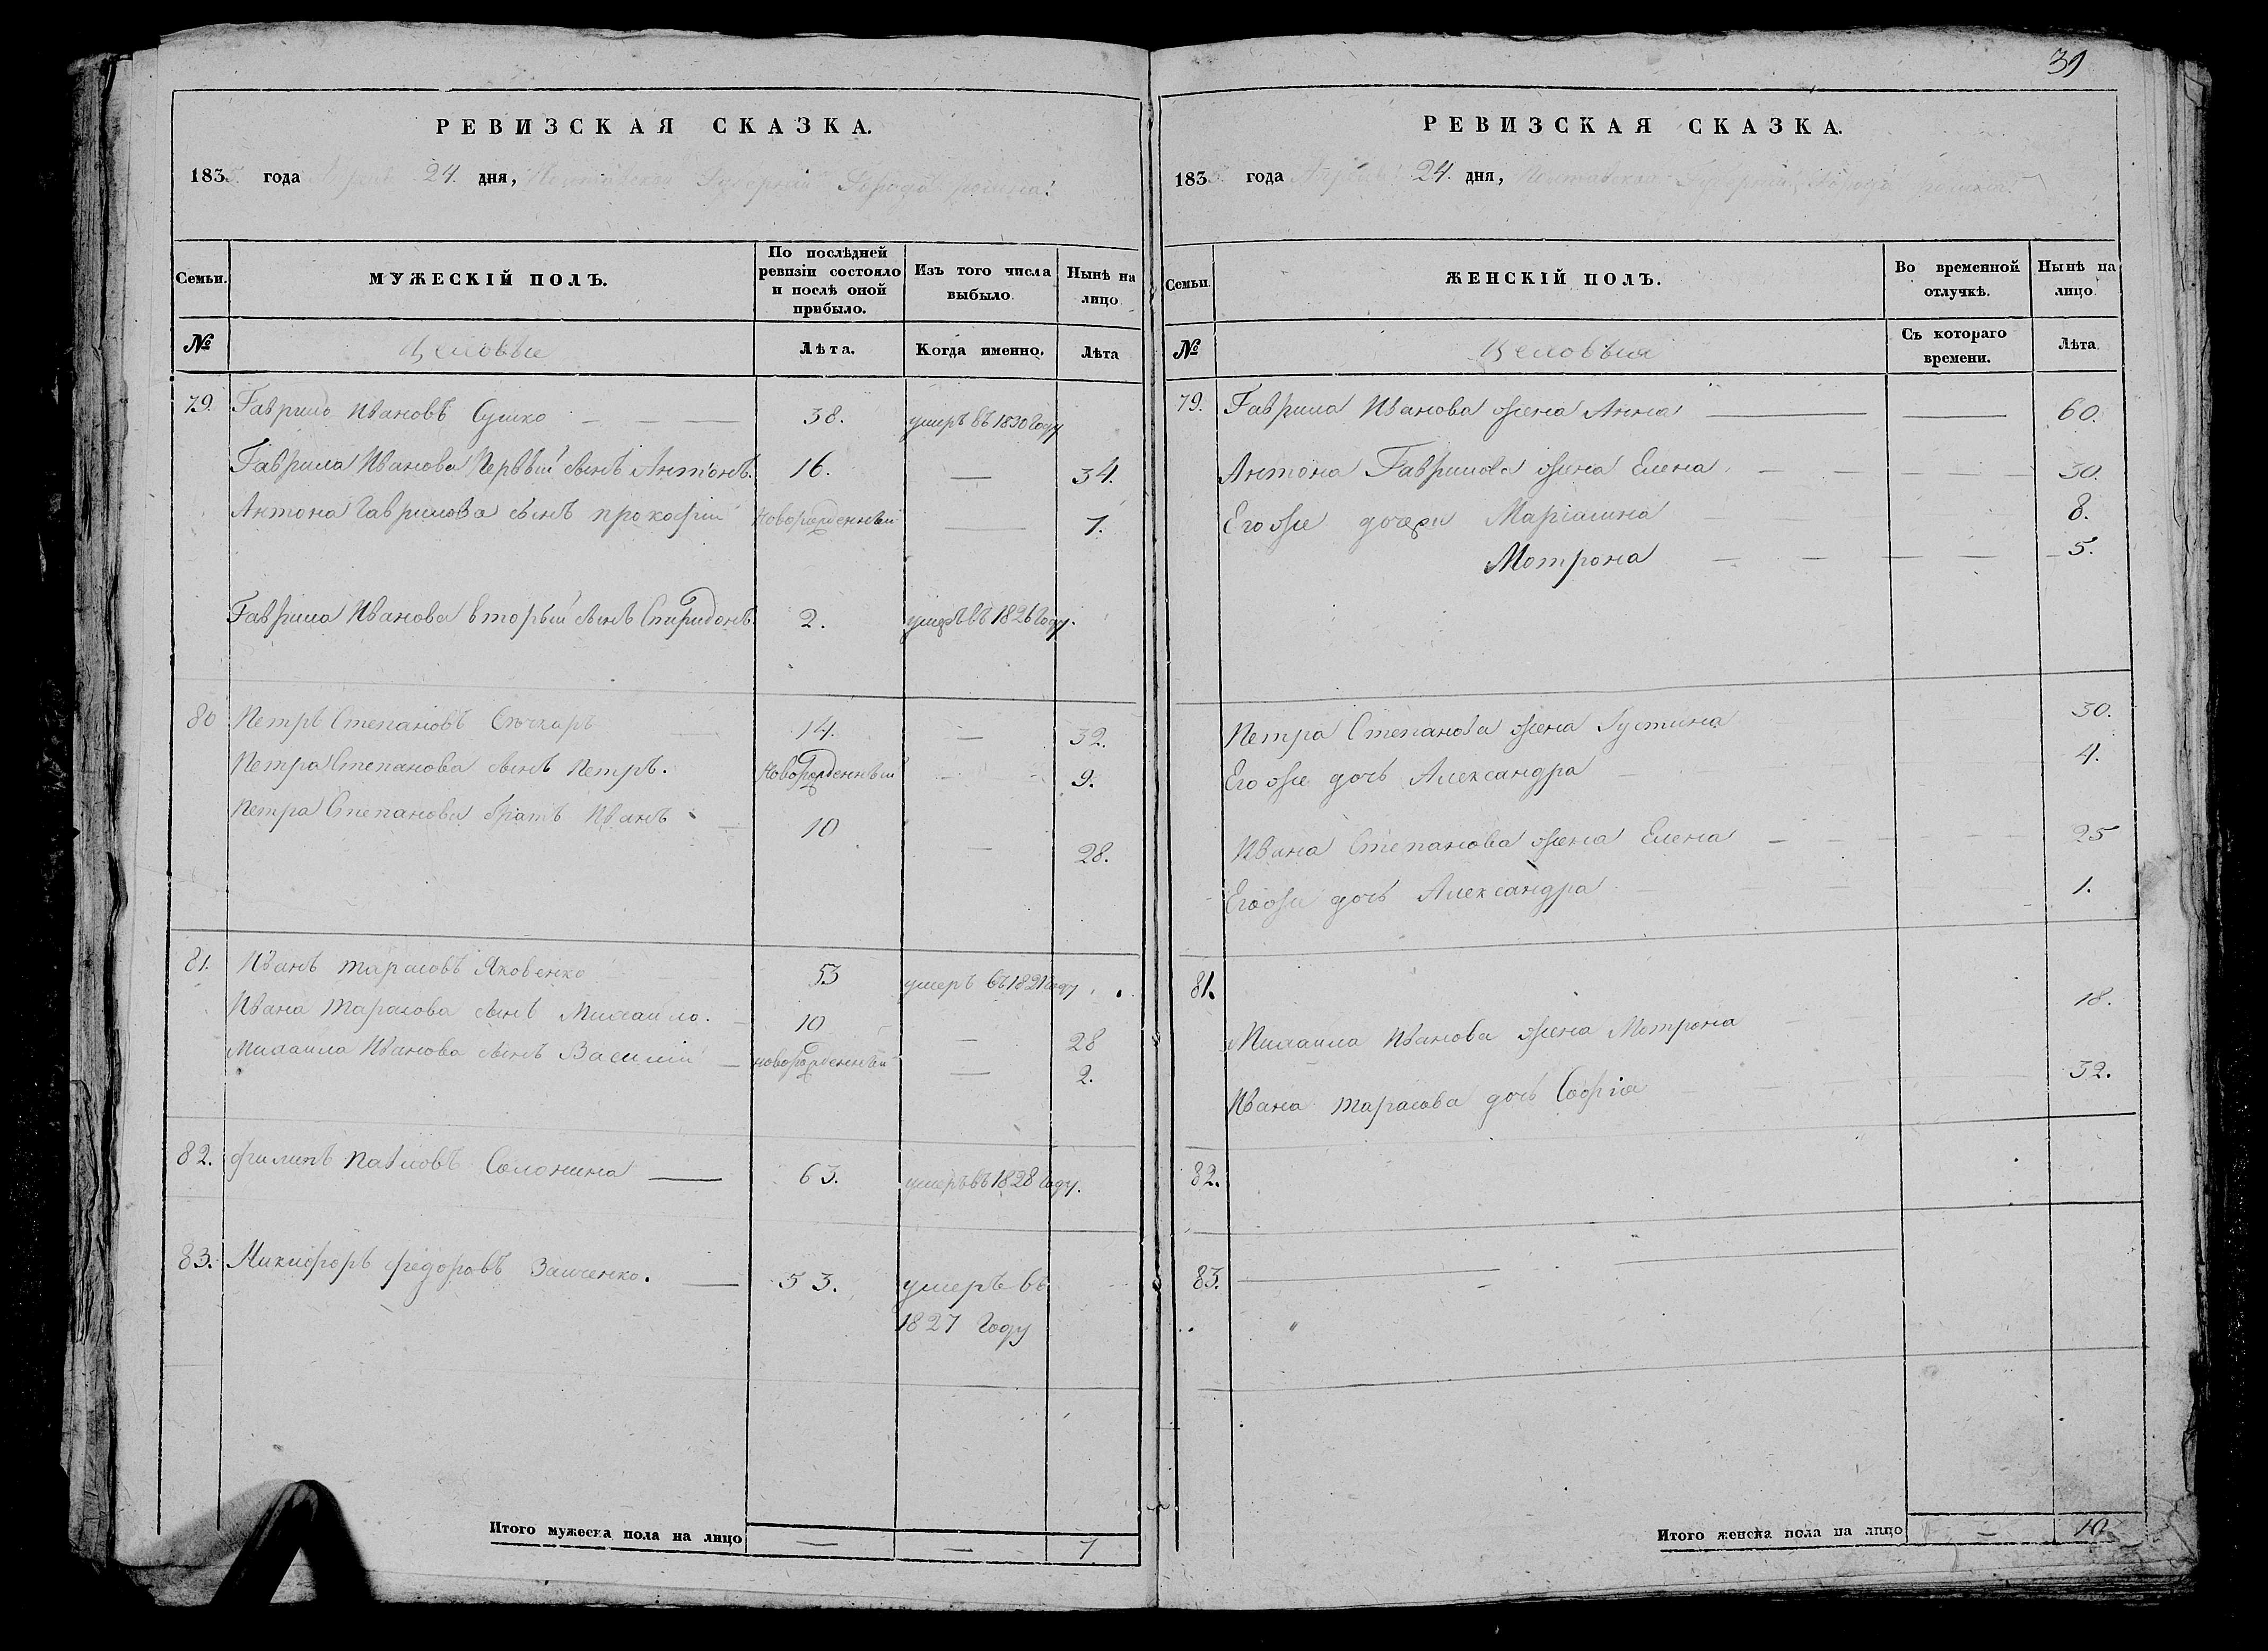 39
РЕВИЗСКАЯ СКАЗКА.
1835 года Апреля 24. дня, Полтавской Губернии Города ромена.
Семьи. МУЖЕСКІЙ ПОЛЪ. По послѣдней ревизіи состояло и послѣ оной прибыло. Изъ того числа выбыло. Нынѣ на лицо
№ Лѣта. Когда именно. Лѣта
79. Гаврило Ивановъ Сушко 38. умеръ въ 1830 Году
Гаврила Иванова Первый сынъ Антонъ. 16. — 34.
Антона Гаврилова сынъ прокофій новорожденный — 7.
Гаврила Иванова вторый сынъ Спиридонъ. 2. умеръ въ 1826 Году.
80 Петръ Степановъ 14. — 32.
Петра Степанова сынъ Петръ. Новорожденный 9.
Петра Степанова братъ Иванъ 10 — 28.
81. Иванъ тарасовъ Яковенко 53 умеръ въ 1821 Году
Ивана тарасова сынъ Михаило. 10 — 28
Михаила Иванова сынъ Василій — новорожденный — 2.
82. филипъ павловъ Солонина — 63. умеръ въ 1828 Году.
83. Никифоръ федоровъ Заиченко. — 53. умеръ въ
1827 Году
Итого мужеска пола на лицо — — 7
РЕВИЗСКАЯ СКАЗКА.
1835 года Апреля 24. дня, Полтавской Губернии, Города ромена.
Семьи. ЖЕНСКІЙ ПОЛЪ. Во временной отлучкѣ. Нынѣ на лицо
№ Съ котораго времени. Лѣта.
79. Гаврила Иванова жена Анна — — 60.
Антона Гаврилова жена Елена. 30.
Егоже дочери Маріамна 8.
Мотрона 5.
Петра Степанова жена Густина 30.
Егоже дочь Александра 4.
Ивана Степанова жена Елена 25
Егоже дочь Александра 1.
81.
Михаила Иванова жена Мотрона 18.
Ивана тарасова дочь Софія 32.
82.
83.
Итого женска пола на лицо — 10.